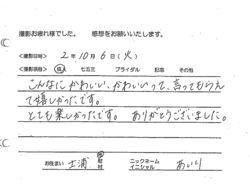 撮影お疲れ様でした。 感想をお願いいたします。
<撮影日> 2年10月6日(火)
<撮影項目> 成人 七五三 ブライダル 記念 その他
こんなにかわいい、かわいいって、言ってもらえ
て嬉しかったです。
とても楽しかったです。 ありがとうございました。
お住まい 土浦 市 町 村 ニックネーム イニシャル あいり